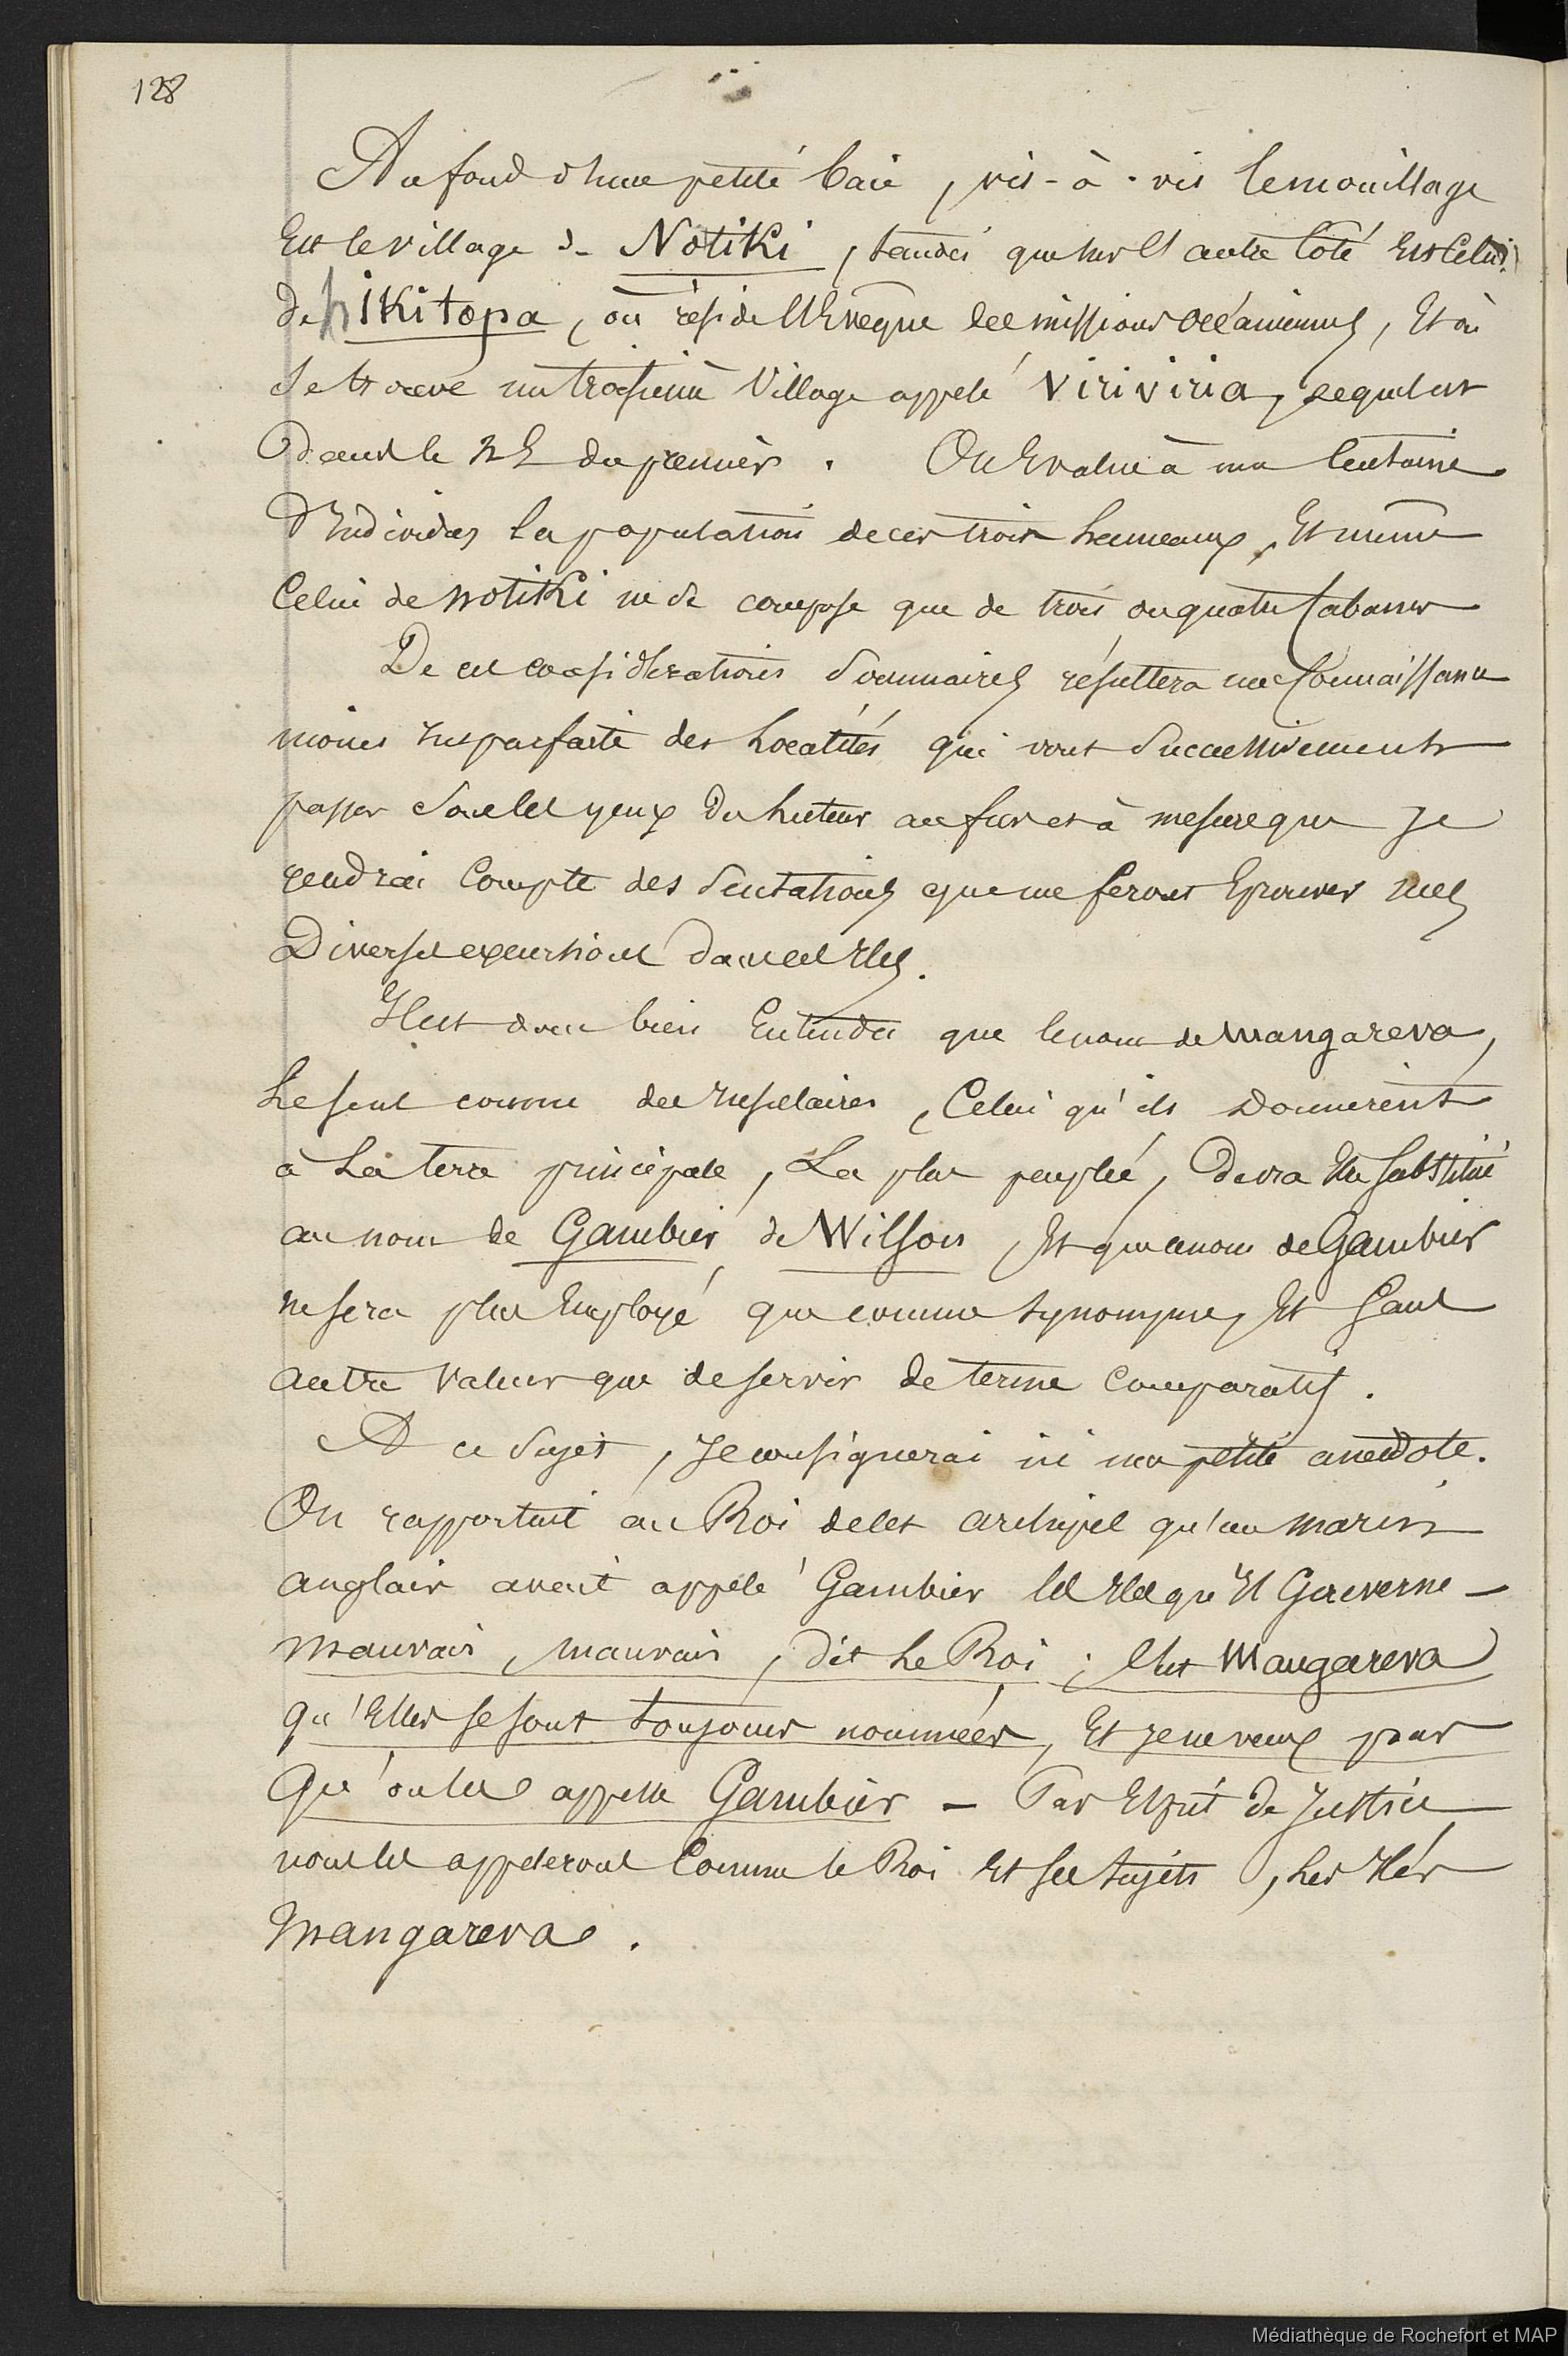 128
Au fond d'une petite baie, vis-à-vis le mouillage
Est le village de Notiki, tandis que sur l'autre Côté Est Celui
de hikitopa, où réside l'Evêque des missions océaniennes, Et où
se trouve un troisième Village appelé Viriviria, lequel est
dans le NE du premier. On Evalue à une Centaine
d'Individus la population de ces trois hameaux, Et même
Celui de Notiki ne se compose que de trois ou quatre Cabanes
De ces considérations sommaires résultera une Connaissance
moins imparfaite des Localités qui vont successivement
passer sous les yeux du Lecteur au fur et à mesure que Je
rendrai Compte des sensations que me feront Eprouver mes
Diverses excursions dans ces Iles.
Il est donc bien Entendu que le nom de Mangareva,
Le seul connu des Insulaires, Celui qu'ils Donnèrent
à La terre principale, La plus peuplée, Devra Etre substitué
au nom de Gambier, de Wilson, Et que ce nom de Gambier
ne sera plus Employé que comme synonyme, Et sans
autre Valeur que de servir de terme Comparatif.
A ce sujet, Je consignerai ici une petite anecdote.
On rapportait au Roi de cet archipel qu'un marin
anglais avait appelé Gambier les Iles qu'Il Gouverne —
mauvais, mauvais, dit Le Roi ; C'est Mangareva
qu'Elles se sont toujours nommées, Et Je ne veux pas
Qu'on les appelle Gambier — Par Esprit de Justice
nous les appelerons Comme le Roi Et ses sujets, Les Iles
Mangareva.
Médiathèque de Rochefort et MAP